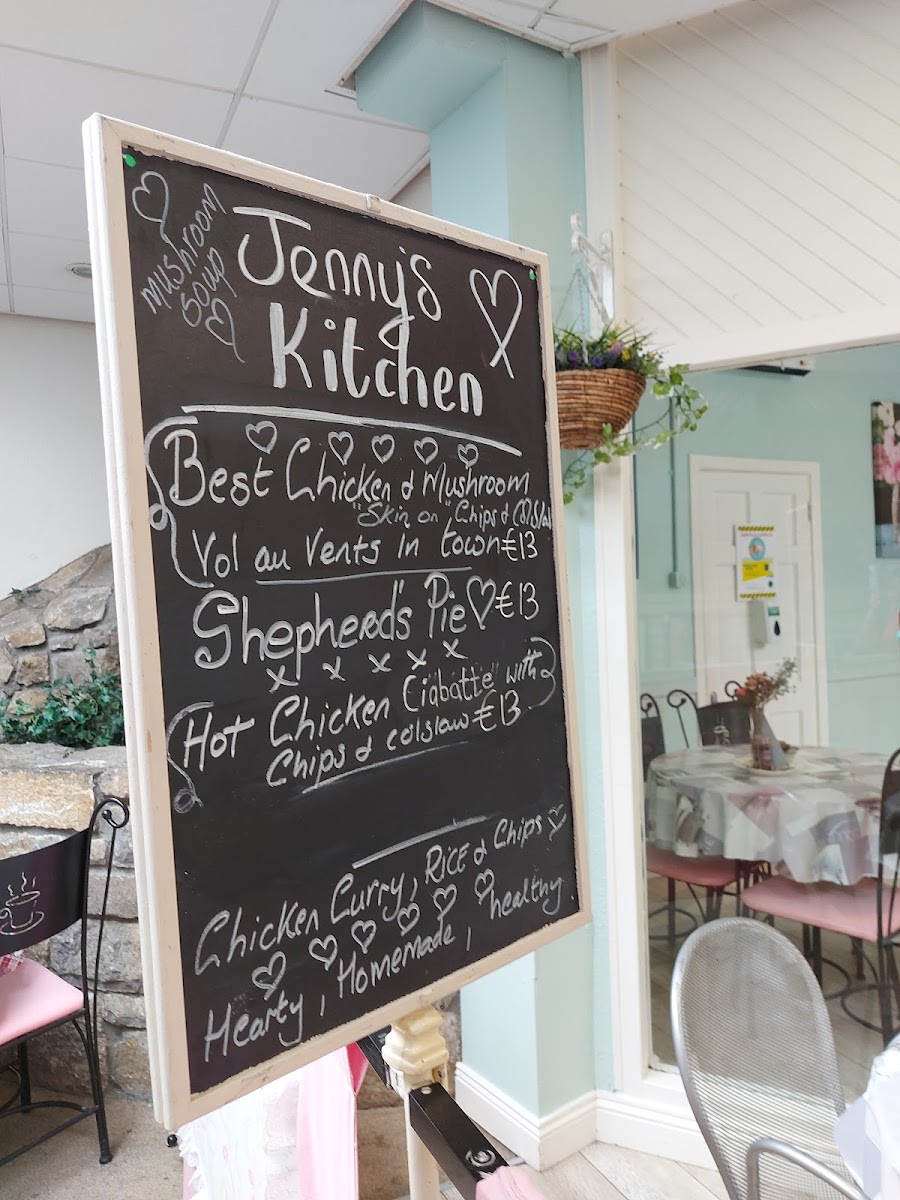 mushroom
soup
Jenny's
Kitchen
Best Chicken & Mushroom
"Skin on" Chips & Colslaw
Vol au Vents in town €13
Shepherd's Pie €13
x x x x x
Hot Chicken "Ciabatte" with
Chips & colslaw €13
Chicken Curry, RICE & Chips
Hearty, Homemade, healthy